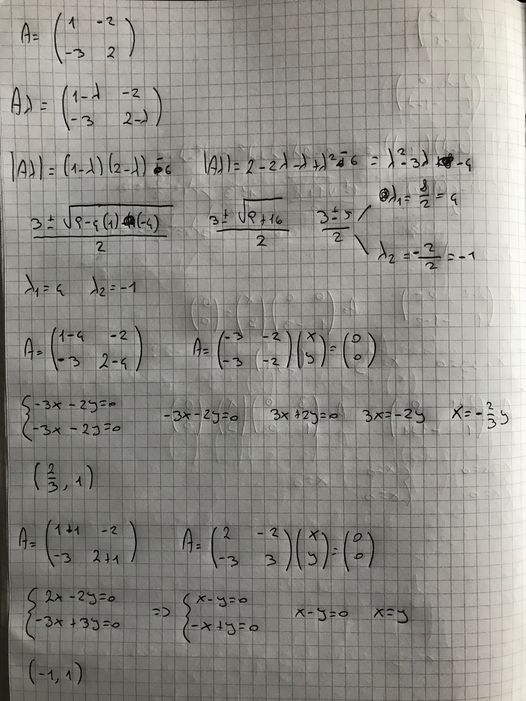 A = ( 1 -2 ; -3 2 )
Aλ = ( 1-λ -2 ; -3 2-λ )
|Aλ| = (1-λ)(2-λ) - 6 |Aλ| = 2-2λ-λ+λ²-6 = λ²-3λ-4
3±√9-4(1)(-4) / 2 3±√9+16 / 2 3±5 / 2 λ₁ = 8/2 = 4
λ₂ = -2/2 = -1
λ₁=4 λ₂=-1
A = ( 1-4 -2 ; -3 2-4 ) A = ( -3 -2 ; -3 -2 ) ( x ; y ) = ( 0 ; 0 )
{ -3x-2y=0 ; -3x-2y=0 -3x-2y=0 3x+2y=0 3x=-2y x=-2/3y
( 2/3 , 1 )
A = ( 1+1 -2 ; -3 2+1 ) A = ( 2 -2 ; -3 3 ) ( x ; y ) = ( 0 ; 0 )
{ 2x-2y=0 ; -3x+3y=0 => { x-y=0 ; -x+y=0 x-y=0 x=y
(-1, 1)